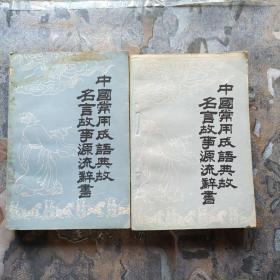 中國常用成語典故
名言故事源流辭書
中國常用成語典故
名言故事源流辭書